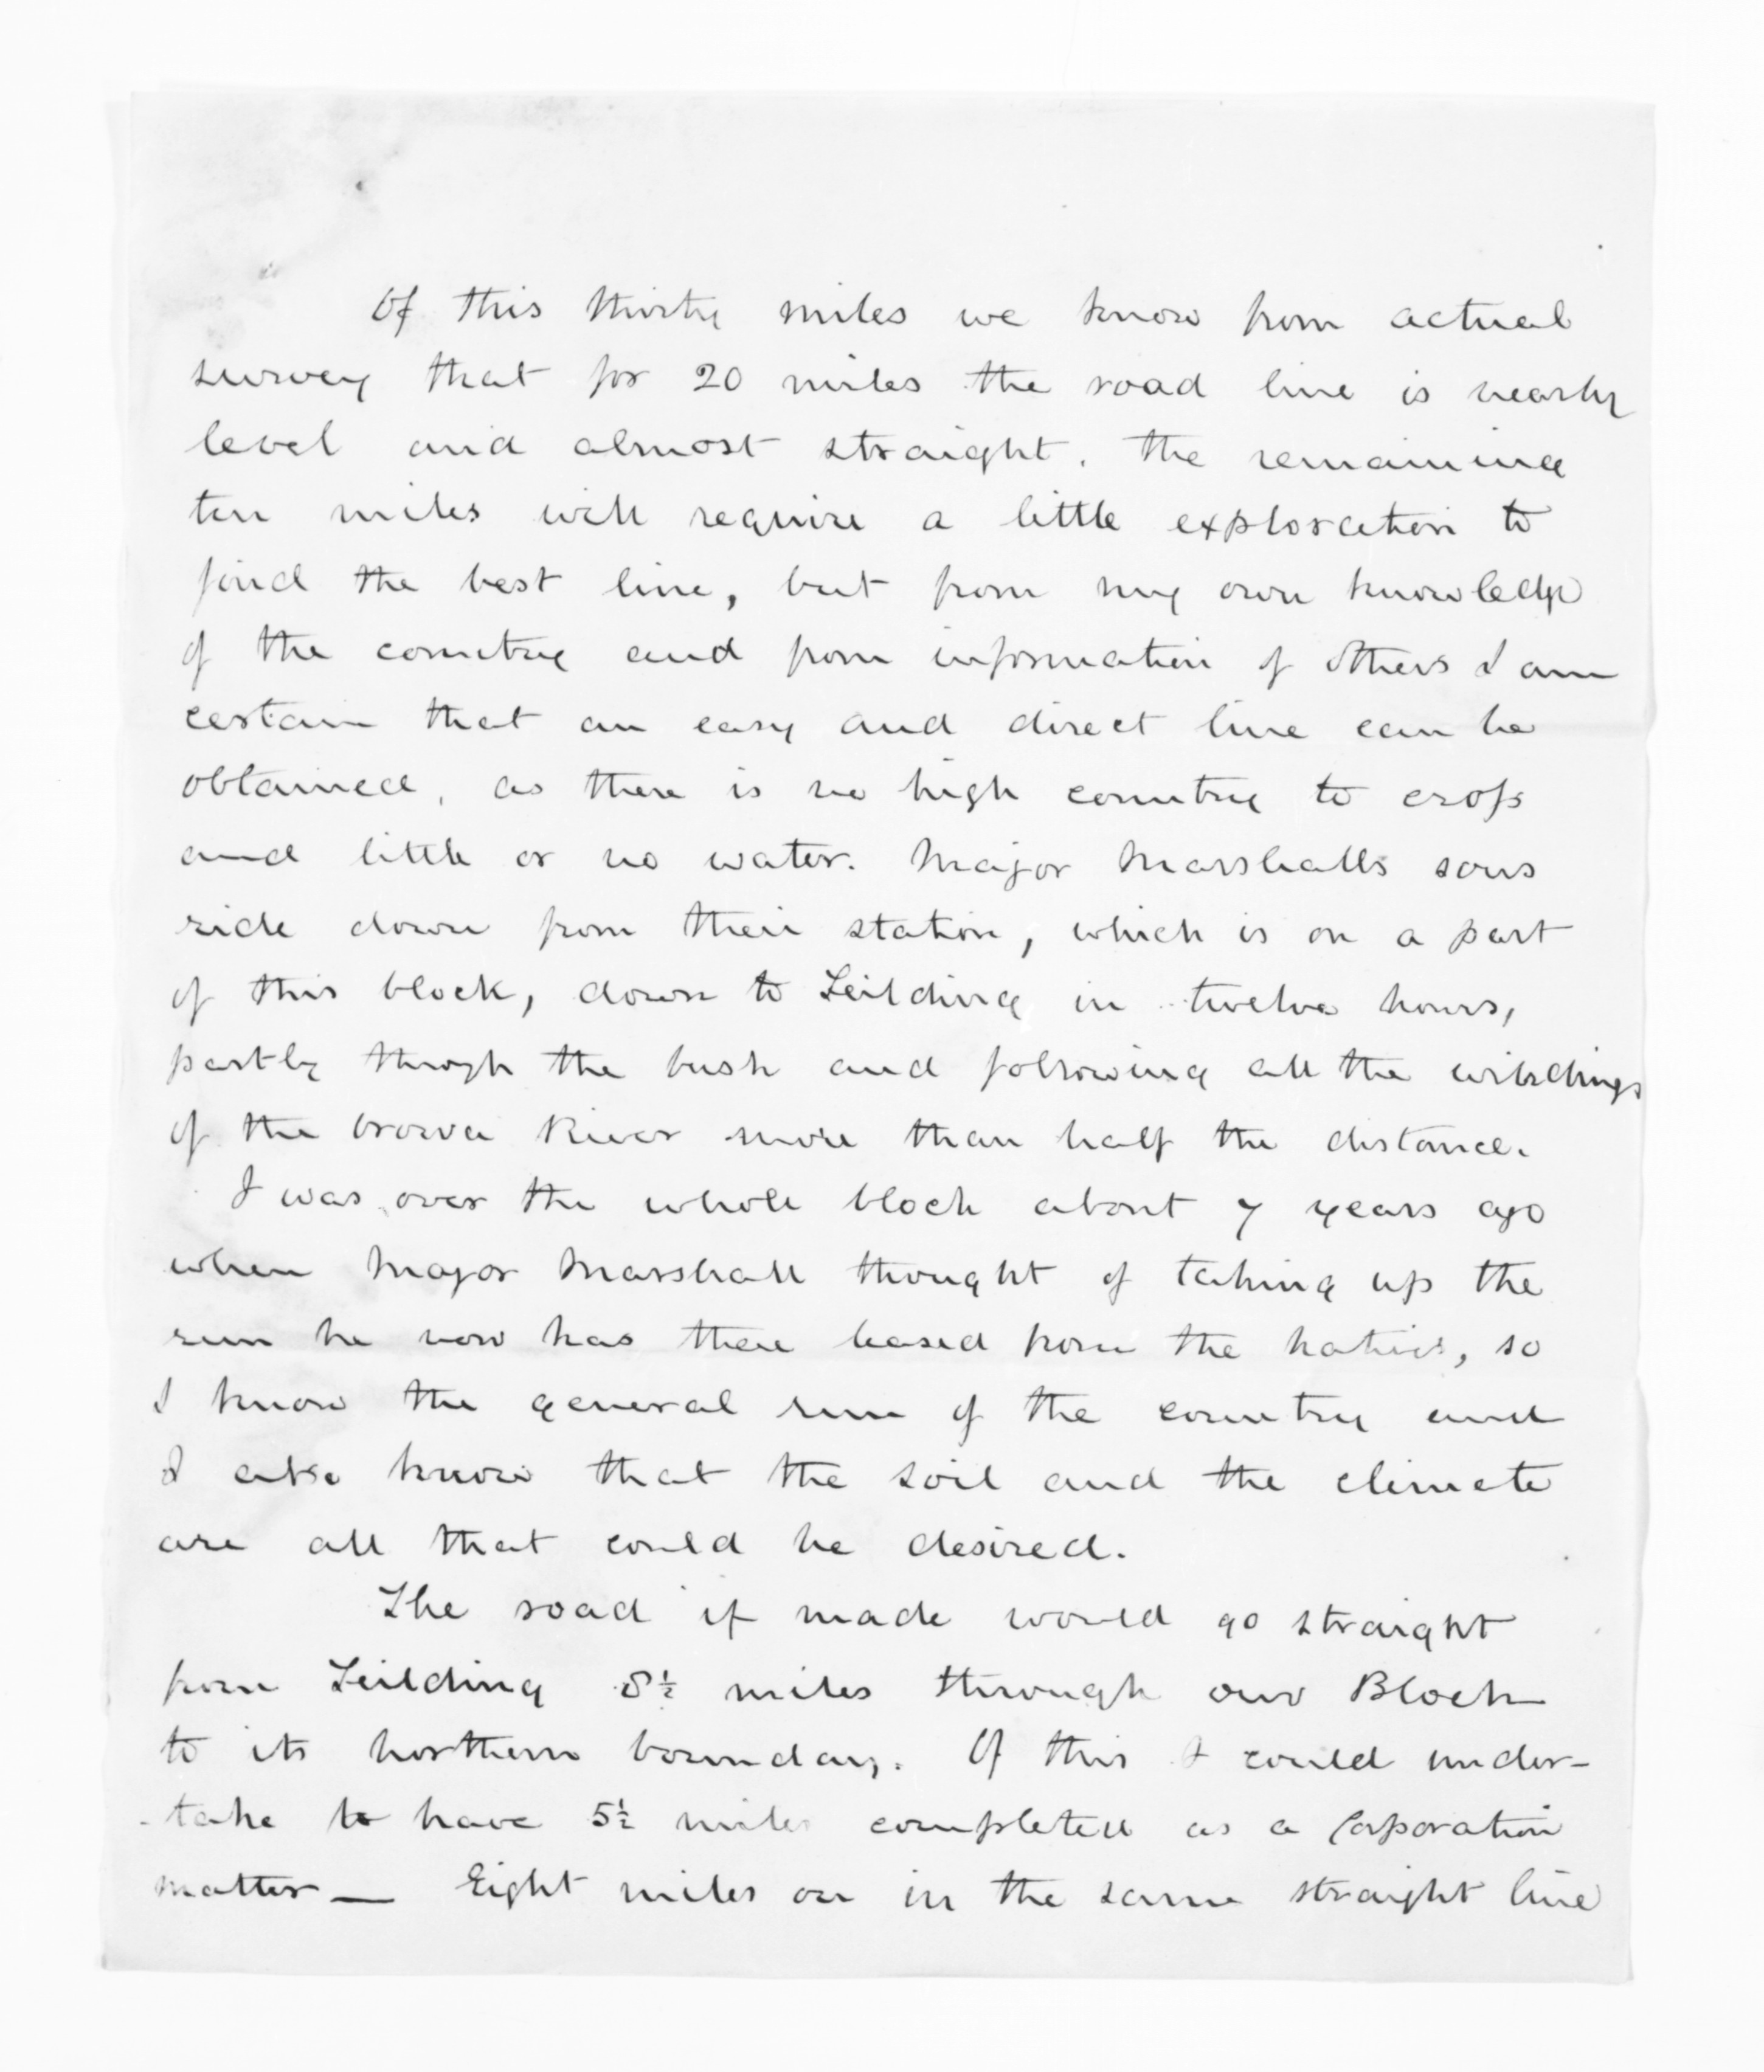 Of this thirty miles we know from actual
survey that for 20 miles the road line is nearly
level and almost straight. The remaining
ten miles will require a little exploration to
find the best line, but from my own knowledge
of the country and from information of others I am
certain that an easy and direct line can be
obtained, as there is no high country to cross
and little or no water. Major Marshalls sons
ride down from their station, which is on a part
of this block, down to Feilding in twelve hours,
partly throgh the bush and following all the windings
of the Oroua River more than half the distance.
I was over the whole block about 7 years ago
when Major Marshall thought of taking up the
run he now has there leased from the natives, so
I know the general run of the country and
I also know that the soil and the climate
are all that could be desired.
The road if made would go straight
from Feilding 8½ miles through our Block
to its northern boundary. Of this I could under-
-take to have 5½ miles completed as a Corporation
matter — Eight miles on in the same straight line